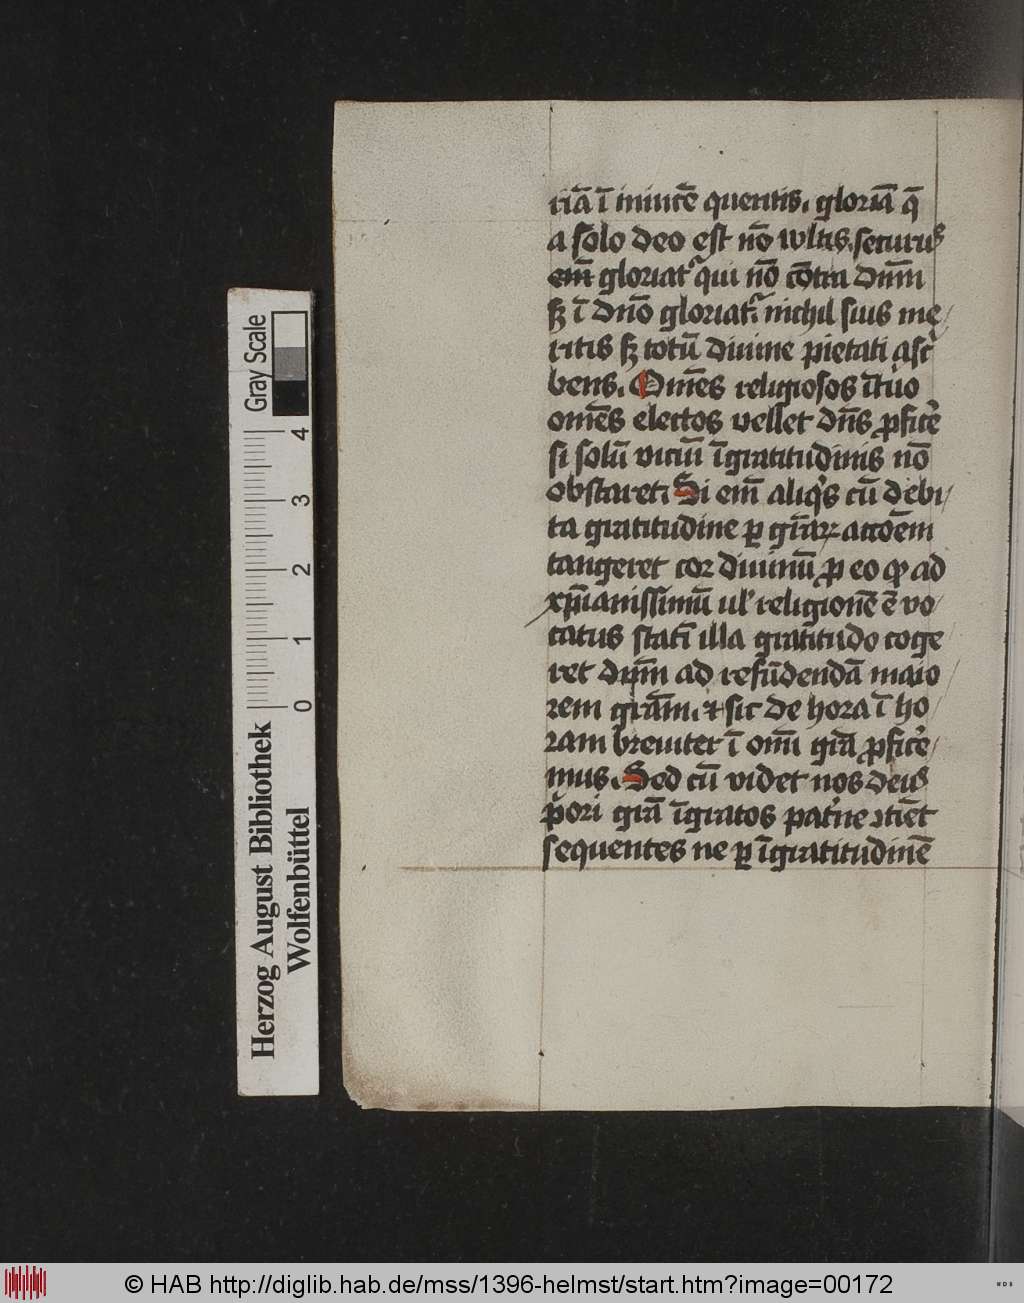 riā ī inuicē queritis. gloriā q̄
a solo deo est nō wltis. securus
em̄ gloriat᷑ qui nō cōtra dn̄m
sꝫ ī dn̄o gloriat᷑. nichil suis me
ritis sꝫ totū diuine pietati ascͥ
bens. Om̄es religiosos īmo
om̄es electos vellet dn̄s ꝓficẽ
si solū viciū īgratitudinis nō
obstaret. Si em̄ aliqͥs cū debi
ta gratitudine ꝑ gr̄aꝝ accōem
tangeret cor diuinū ꝓ eo ꝙ ad
xp̄ianissimū ul' religionē ē vo
catus statī illa gratitudo coge
ret dn̄m ad refūdendā maio
rem grām. ⁊ sic de hora ī ho
ram breuiter ī om̄i grā ꝓficẽ
mus. Sed cū videt nos deus
pͥori grā īgratos pat᷑ne ꝯtiēt
sequentes ne ꝑ īgratitudinē
Gray Scale
4
3
2
1
0
Herzog August Bibliothek
Wolfenbüttel
© HAB http://diglib.hab.de/mss/1396-helmst/start.htm?image=00172
WDB